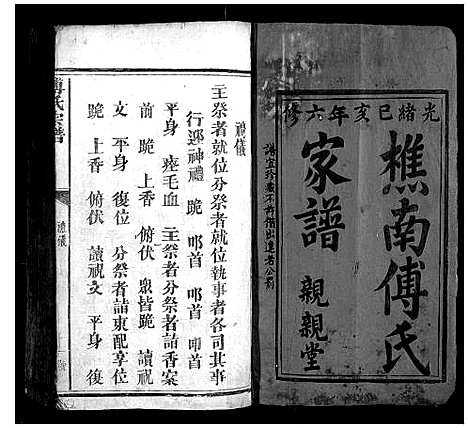 光緒己亥年六修
樵南傅氏
家譜
親親堂
謹宜珍藏不許借出違者公罰
禮儀
主祭者就位分祭者就位執事者各司其事
行迎神禮 跪 叩首 叩首 叩首
平身 瘞毛血 主祭者分祭者詣香案
前 跪 上香 俯伏 眾皆跪 讀祝
文 平身 復位 分祭者詣東配享位
跪 上香 俯伏 讀祝文 平身 復
傅氏宗譜
禮儀